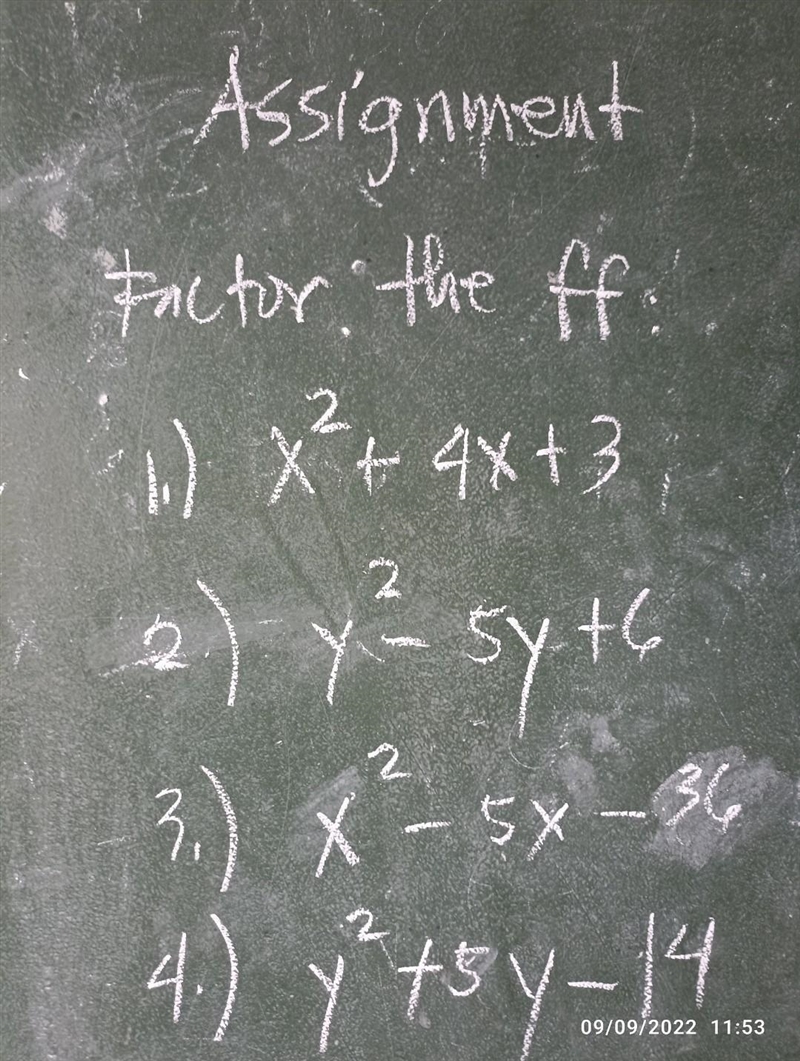 Assignment
Factor the ff:
1.) x² + 4x + 3
2) y² - 5y + 6
3.) x² - 5x - 36
4.) y² + 5y - 14
09/09/2022 11:53